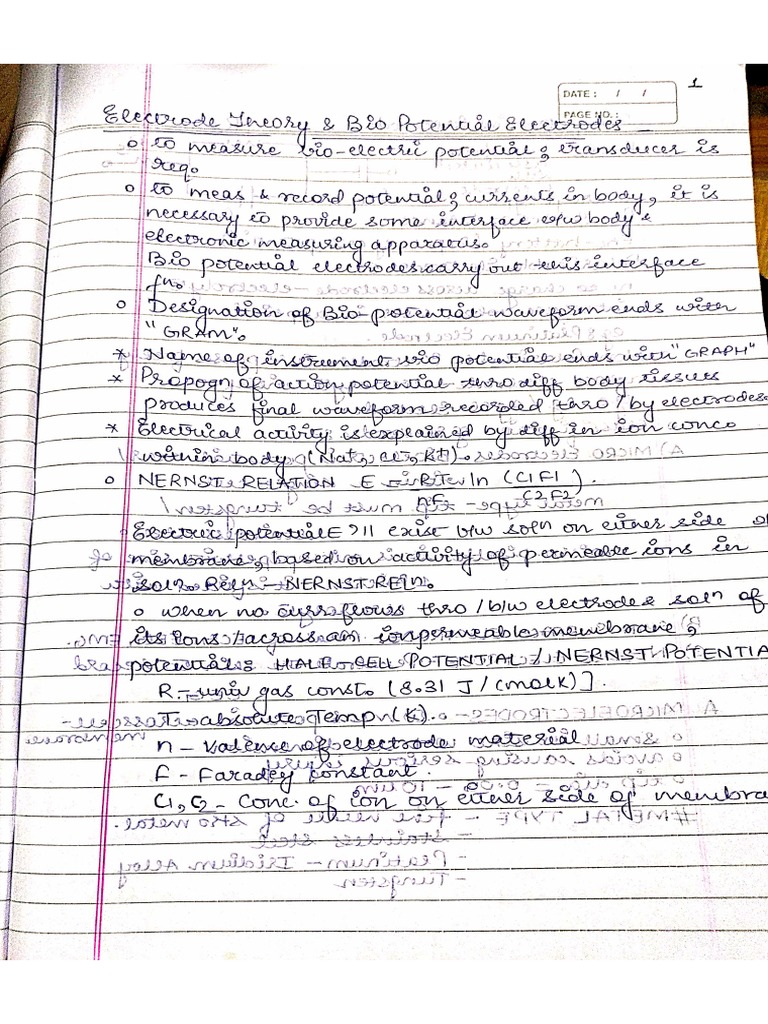 1
DATE: / /
PAGE NO.:
Electrode Theory & Bio Potential Electrodes
o to measure bio-electric potential, transducer is
req.
o to meas & record potential, currents in body, it is
necessary to provide some interface b/w body &
electronic measuring apparatus.
Bio potential electrodes carry out this interface
fn.
o Designation of Bio potential waveform ends with
"GRAM".
* Name of instrument bio potential ends with "GRAPH"
* Propogn of action potential thro diff body tissues
produces final waveform recorded thro/by electrodes
* Electrical activity is explained by diff in ion conc
within body (Na+, Cl-, K+).
o NERNST RELATION E = ln (C1F1)
nF C2F2
Electric potential E'll exist b/w soln on either side of
membrane, based on activity of permeable ions in
soln. Reln - NERNST Reln.
o when no curr flows thro/b/w electrode & soln of
its ions/across an ionpermeable membrane,
potential: HALF CELL POTENTIAL / NERNST POTENTIA
R - univ gas const. [8.31 J/(molK)].
T - absolute Tempn (K).
n - valence of electrode material
F - Faradey constant.
C1, C2 - Conc. of ion on either side of membra
A) MICRO ELECTRODES
metal type - tip must be "tungsten"
A. MICROELECTRODES
#METAL TYPE
- Stainless Steel
- Platinum - Iridium Alloy
- Tungsten